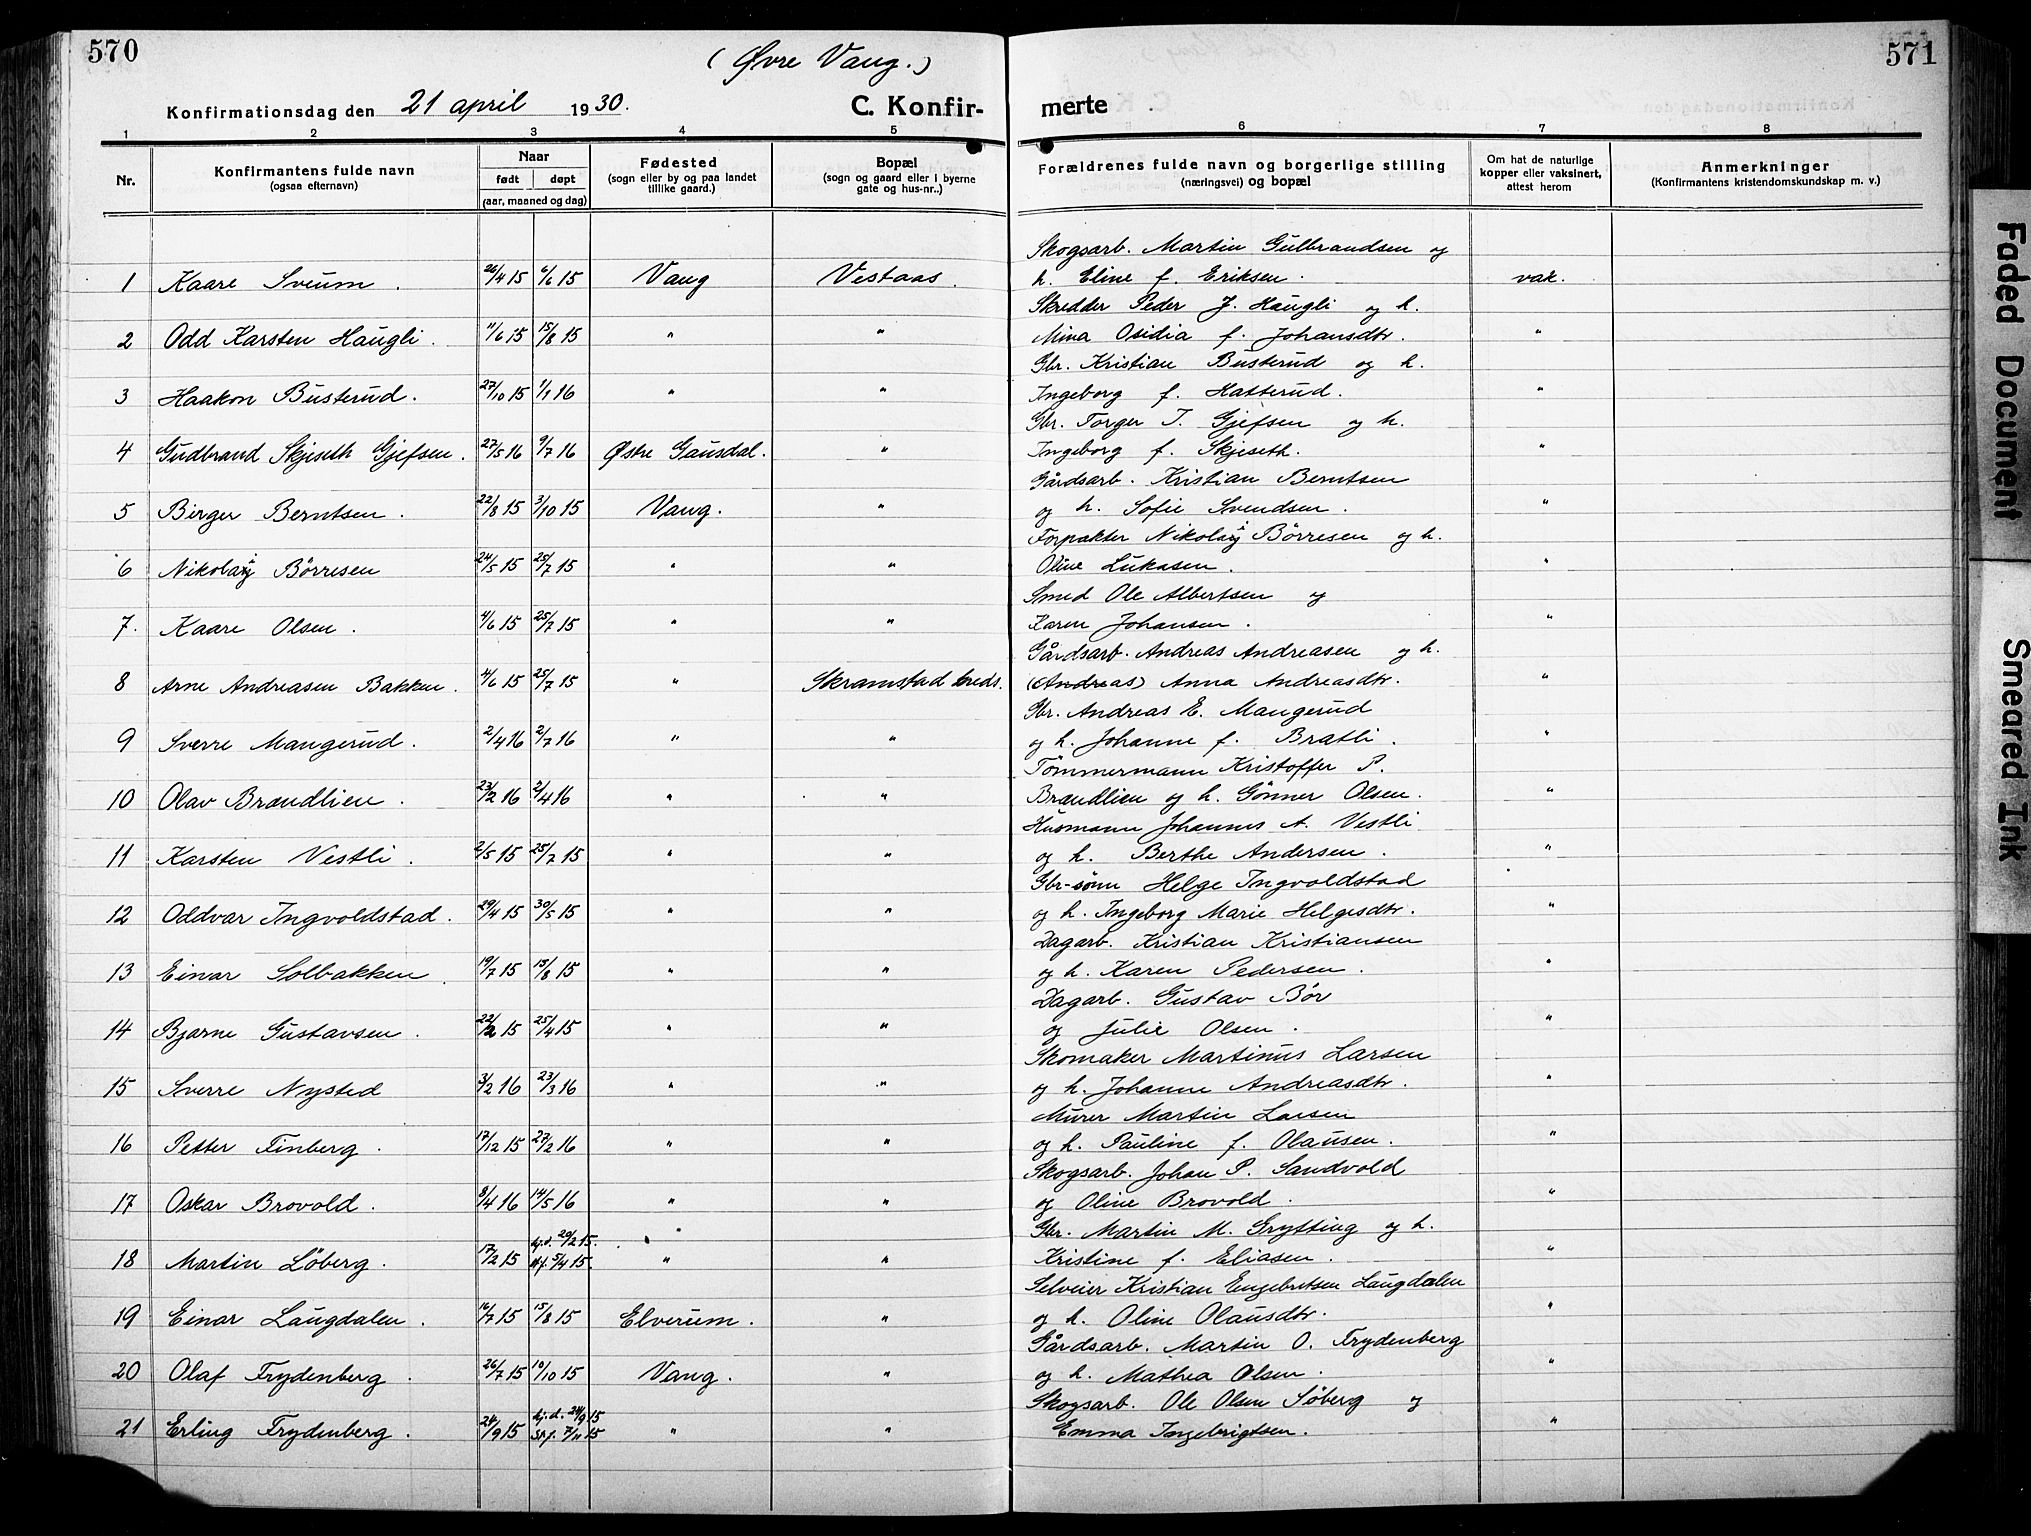 570
571
(Øvre Vang.)
Konfirmationsdag den 21 april 1930.
C. Konfirmerte
1 2 3 4 5 6 7 8
Nr.
Konfirmantens fulde navn
(ogsaa efternavn)
Naar
født døpt
(aar, maaned og dag)
Fødested
(sogn eller by og paa landet
tillike gaard.)
Bopæl
(sogn og gaard eller i byerne
gate og hus-nr..)
Forældrenes fulde navn og borgerlige stilling
(næringsvei) og bopæl
Om hat de naturlige
kopper eller vaksinert,
attest herom
Anmerkninger
(Konfirmantens kristendomskundskap m. v.)
Skogsarb. Martin Gulbrandsen og
1 Kaare Sveum. 26/4 15 6/6 15 Vang Vestaas. h. Eline f. Eriksen. vak.
Skredder Peder J. Haugli og h.
2 Odd Karsten Haugli. 11/6 15 15/8 15 " " Mina Osidia f. Johansdtr. "
Gbr. Kristian Busterud og h.
3 Haakon Busterud. 27/10 15 1/1 16 " " Ingeborg f. Hatterud. "
Gbr. Torger T. Gjefsen og h.
4 Gudbrand Skjeseth Gjefsen. 27/5 16 9/7 16 Østre Gausdal. " Ingeborg f. Skjeseth. "
Gårdsarb. Kristian Berntsen
5 Birger Berntsen. 22/8 15 3/10 15 Vang. " og h. Sofie Svendsen. "
Forpakter Nikolay Børresen og h.
6 Nikolay Børresen 24/5 15 25/7 15 " " Oline Lukasen. "
Smed Ole Albertsen og
7. Kaare Olsen. 4/6 15 25/7 15 " " Karen Johansen. "
Gårdsarb. Andreas Andreasen og h.
8 Arne Andreasen Bakken. 4/6 15 25/7 15 " Skramstad kreds. (Andreas) Anna Andreasdtr. "
Gbr. Andreas E. Mangerud
9 Sverre Mangerud. 2/4 16 2/7 16 " " og h. Johanne f. Bratli. "
Tømmermann Kristoffer P.
10 Olav Brændlien. 23/2 16 2/4 16 " " Brændlien og h. Gønner Olsen. "
Husmann Johannes A. Vestli
11 Karsten Vestli. 2/5 15 25/7 15 " " og h. Berthe Andersen. "
Gbr-sønn Helge Ingvoldstad
12 Oddvar Ingvoldstad. 29/4 15 30/5 15 " " og h. Ingeborg Marie Helgesdtr. "
Dagarb. Kristian Kristiansen
13 Einar Solbakken 19/7 15 15/8 15 " " og h. Karen Pedersen. "
Dagarb. Gustav Bør
14 Bjarne Gustavsen. 22/2 15 25/4 15 " " og Julie Olsen. "
Skomaker Martinus Larsen
15 Sverre Nysted 3/2 16 23/3 16 " " og h. Johanne Andreasdtr. "
Murer Martin Larsen
16 Petter Finberg. 17/12 15 27/2 16 " " og h. Pauline f. Olausen. "
Skogsarb. Johan P. Sandvold
17 Oskar Brovold. 9/4 16 14/5 16 " " og Oline Brovold. "
Gbr. Martin M. Grytting og h.
18 Martin Løberg. 17/2 15 hj.d. 20/2 15. st.f. 5/4 15. " " Kristine f. Eliasen. "
Selveier Kristian Engebretsen Laugdalen
19 Einar Laugdalen. 16/7 15 15/8 15 Elverum. " og h. Oline Olausdtr. "
Gårdsarb. Martin O. Frydenberg
20 Olaf Frydenberg. 26/7 15 10/10 15 Vang. " og h. Mathea Olsen. "
Skogsarb. Ole Olsen Søberg og
21 Erling Frydenberg. 24/9 15 hj.d. 24/9 15 st.f. 7/11 15 " " Emma Ingebrigtsen. "
Faded Document
Smeared Ink